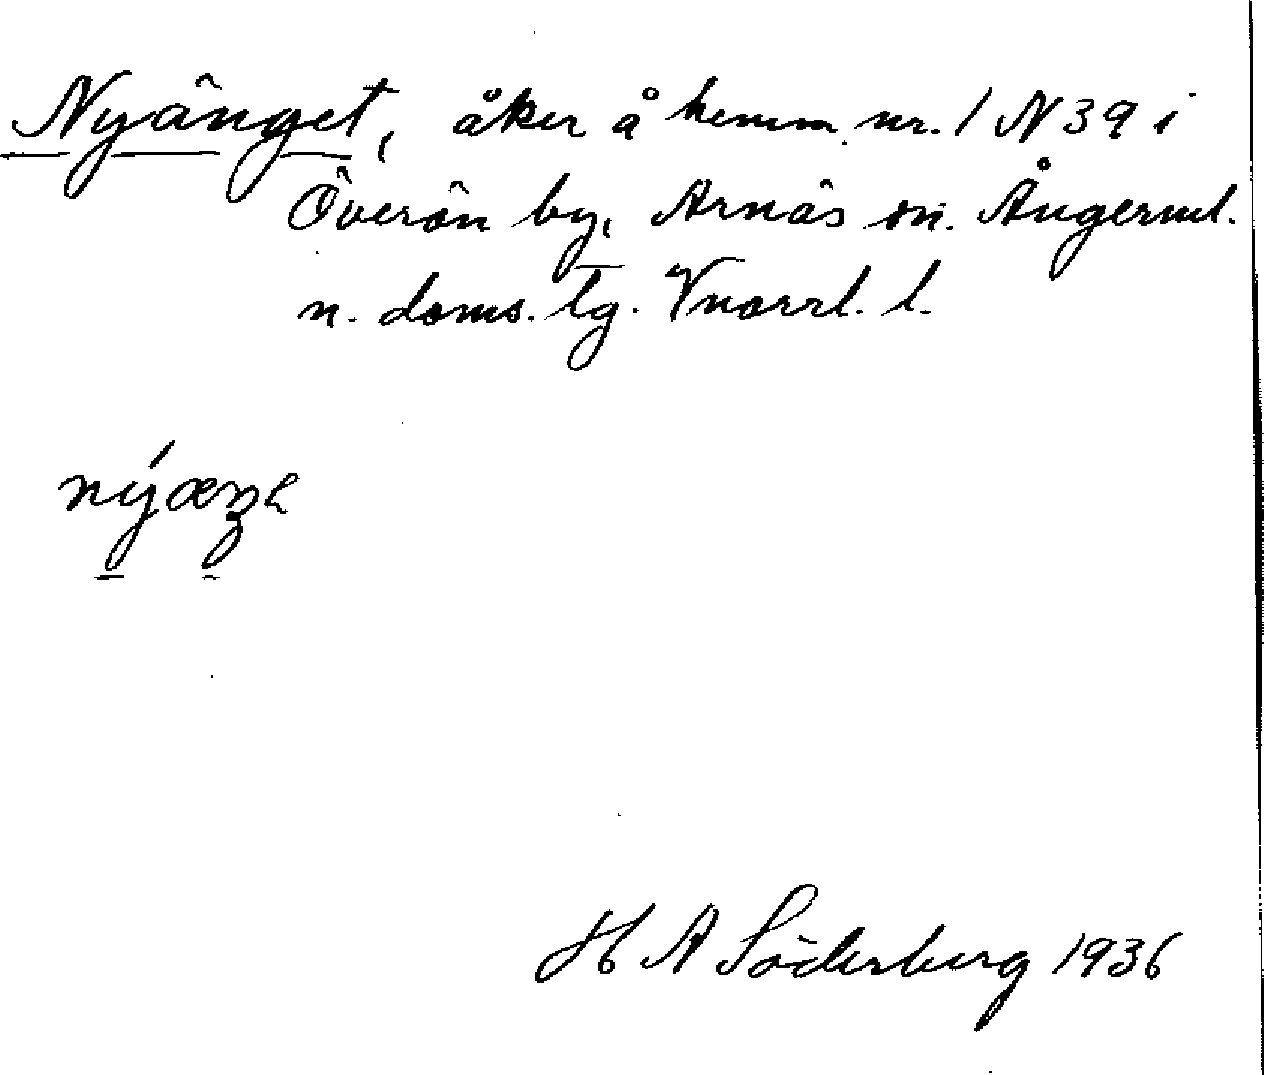 Nyänget, åker å hemm. nr. 1 N 39 i
Överön by, Arnäs sn. Ångerml.
n. doms. lg. Vnorrl. l.
H A Söderberg 1936